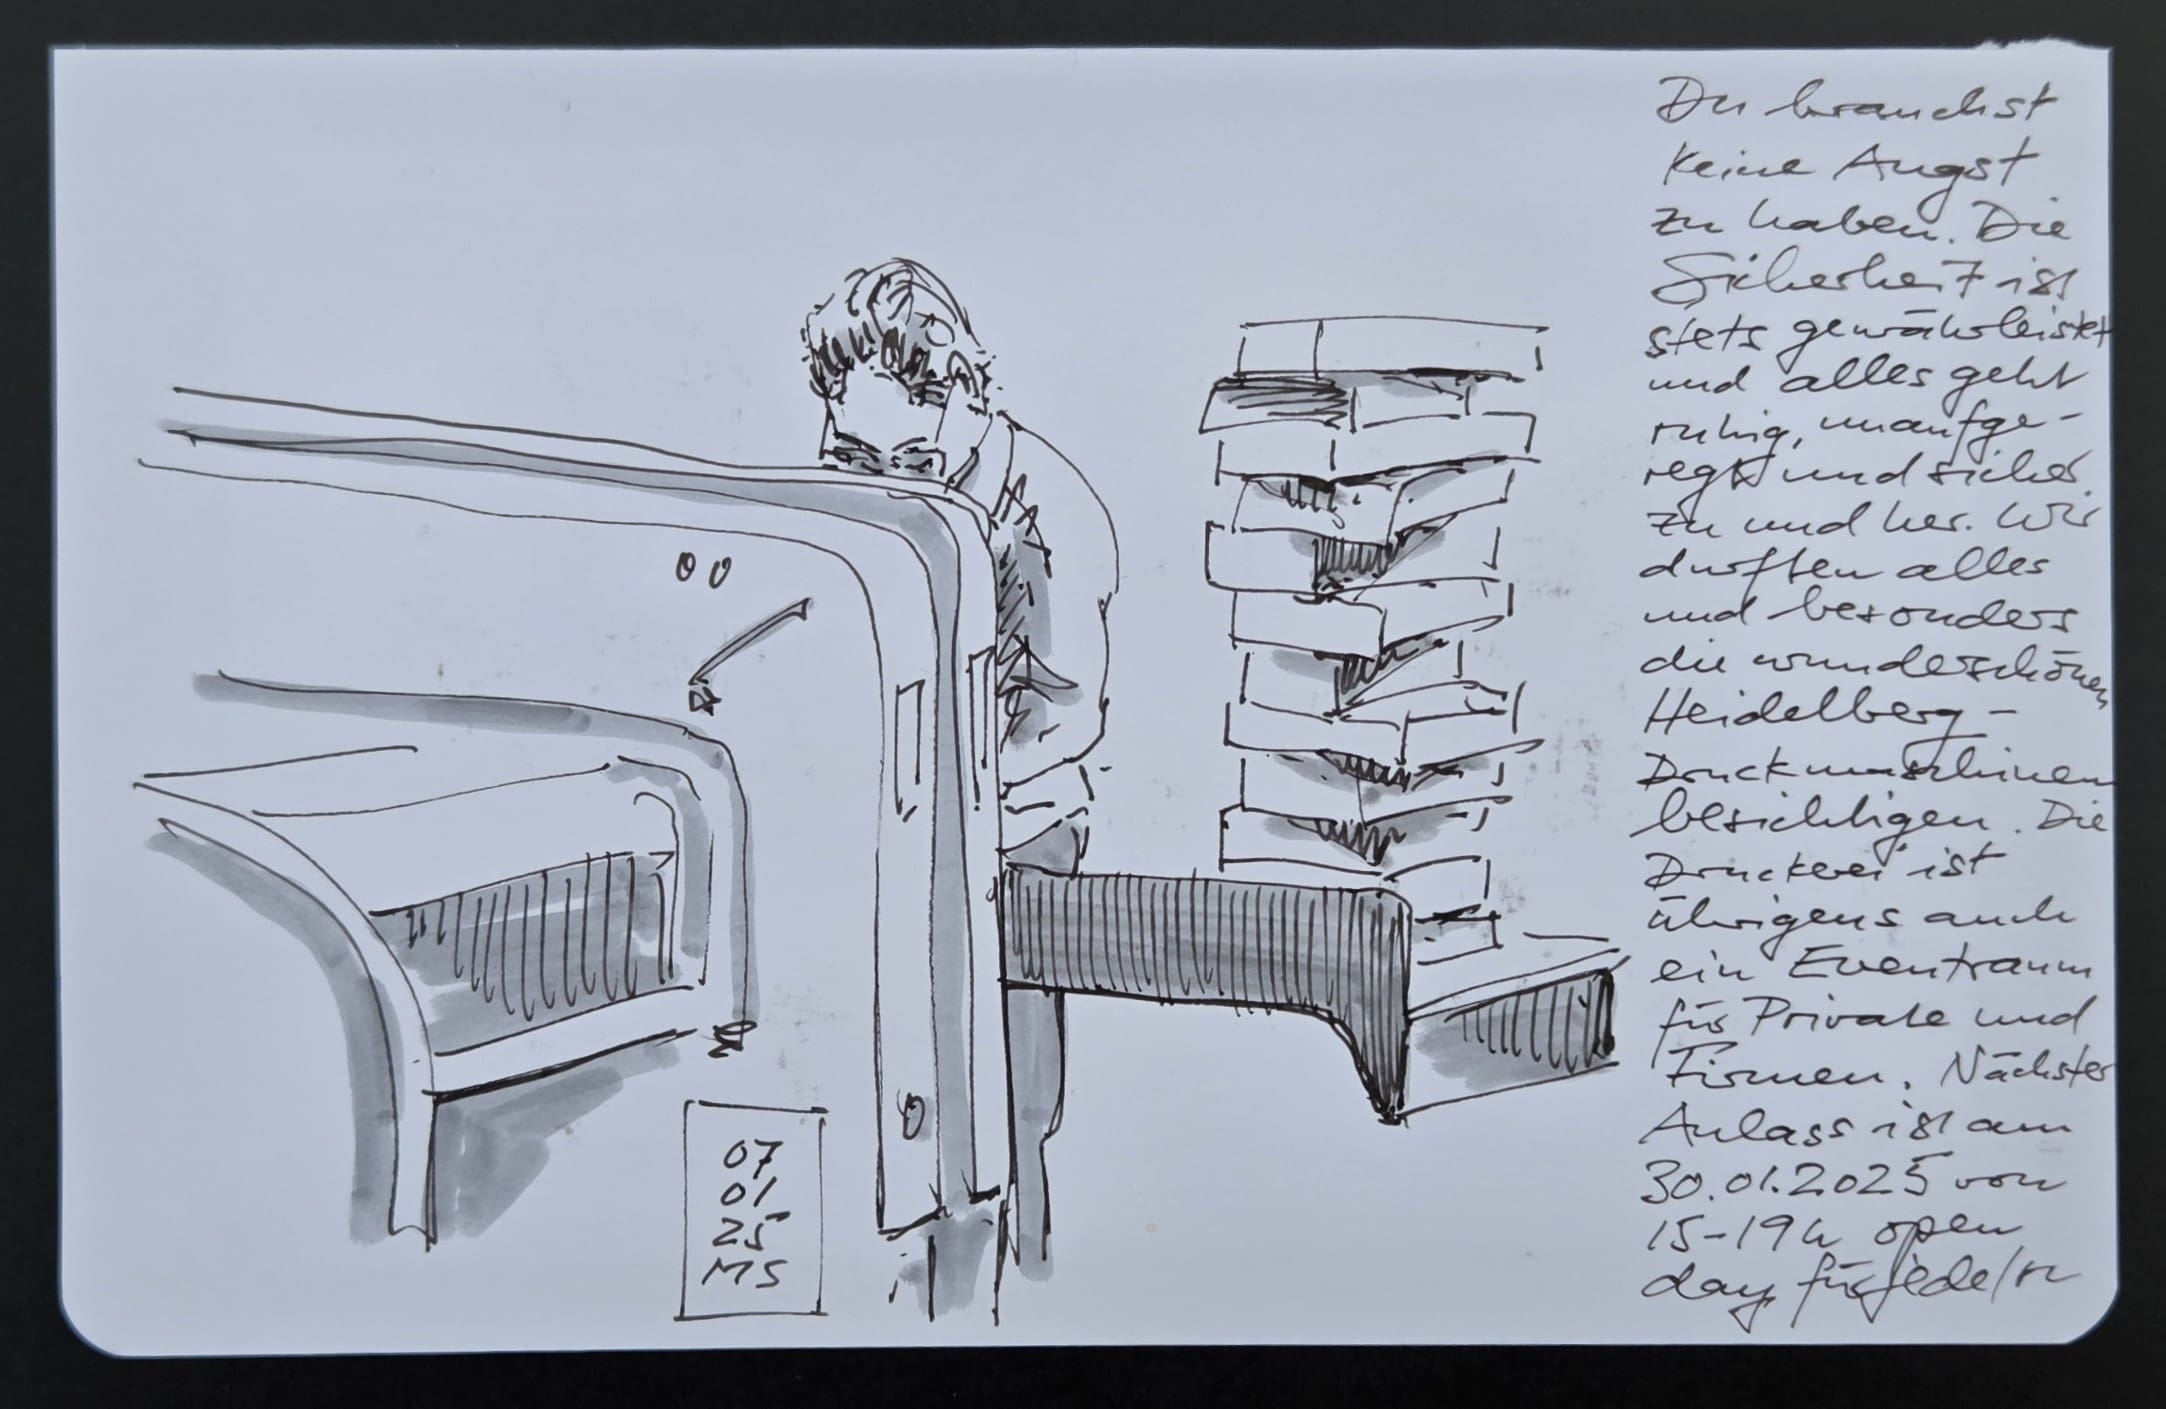 07
01
25
MS
Du brauchst
keine Angst
zu haben. Die
Sicherheit ist
stets gewährleistet
und alles geht
ruhig, unaufge-
regt und sicher
zu und her. Wir
durften alles
und besonders
die wunderschönen
Heidelberg-
Druckmaschinen
besichtigen. Die
Druckerei ist
übrigens auch
ein Eventraum
für Private und
Firmen. Nächster
Anlass ist am
30.01.2025 von
15-19h open
day für jede/n